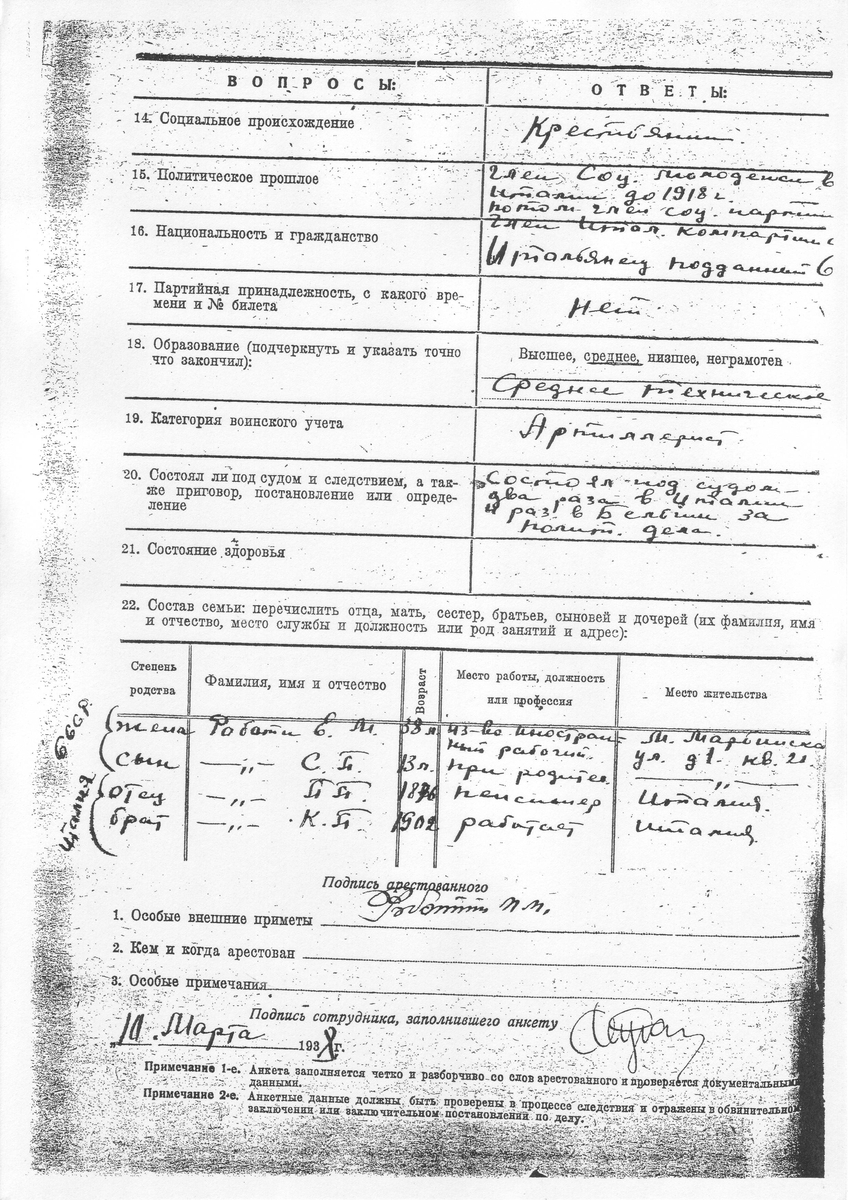 ВОПРОСЫ: ОТВЕТЫ:
14. Социальное происхождение Крестьянин
15. Политическое прошлое член Соц. молодежи в
Италии до 1918 г.
потом член соц. партии
член Итал. компартии с
16. Национальность и гражданство
Итальянец подданный
17. Партийная принадлежность, с какого вре-
мени и № билета
Нет
18. Образование (подчеркнуть и указать точно
что закончил):
Высшее, среднее, низшее, неграмотен
Среднее техническое
19. Категория воинского учета Артиллерист
20. Состоял ли под судом и следствием, а так-
же приговор, постановление или опреде-
ление
Состоял под судом
два раза в Италии
и раз в Бельгии за
полит. дела.
21. Состояние здоровья
22. Состав семьи: перечислить отца, мать, сестер, братьев, сыновей и дочерей (их фамилия, имя
и отчество, место службы и должность или род занятий и адрес):
Степень
родства
Фамилия, имя и отчество
Возраст
Место работы, должность
или профессия
Место жительства
СССР
жена Роботи Е. М. 38 л. из-во Иностран-
ный рабочий.
М. Марьинска
ул. д 1. кв. 21.
сын —„— С. П. 13 л. при родител. —„—
Италия
отец —„— П П. 1876 пенсионер Италия.
брат —„— К. П. 1902 работает Италия.
Подпись арестованного
Роботти П. М.
1. Особые внешние приметы
2. Кем и когда арестован
3. Особые примечания
Подпись сотрудника, заполнившего анкету
„10. Марта 1938 г.
Примечание 1-е. Анкета заполняется четко и разборчиво со слов арестованного и проверяется документальными
данными.
Примечание 2-е. Анкетные данные должны быть проверены в процессе следствия и отражены в обвинительном
заключении или заключительном постановлении по делу.